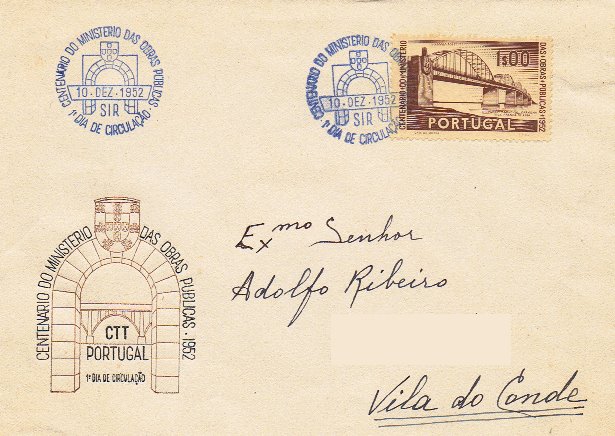 CENTENARIO DO MINISTERIO DAS OBRAS PUBLICAS ·
10 · DEZ · 1952
SIR
1º DIA DE CIRCULAÇÃO ·
CENTENARIO DO MINISTERIO DAS
10 · DEZ · 1952
SIR
1º DIA DE CIRCULA
CENTENARIO DO MINISTERIO
1$00
DAS · OBRAS · PUBLICAS · 1952
PORTUGAL
CENTENARIO DO MINISTERIO DAS OBRAS PUBLICAS · 1952
CTT
PORTUGAL
1º DIA DE CIRCULAÇÃO
Exmo Senhor
Adolfo Ribeiro
Vila do Conde